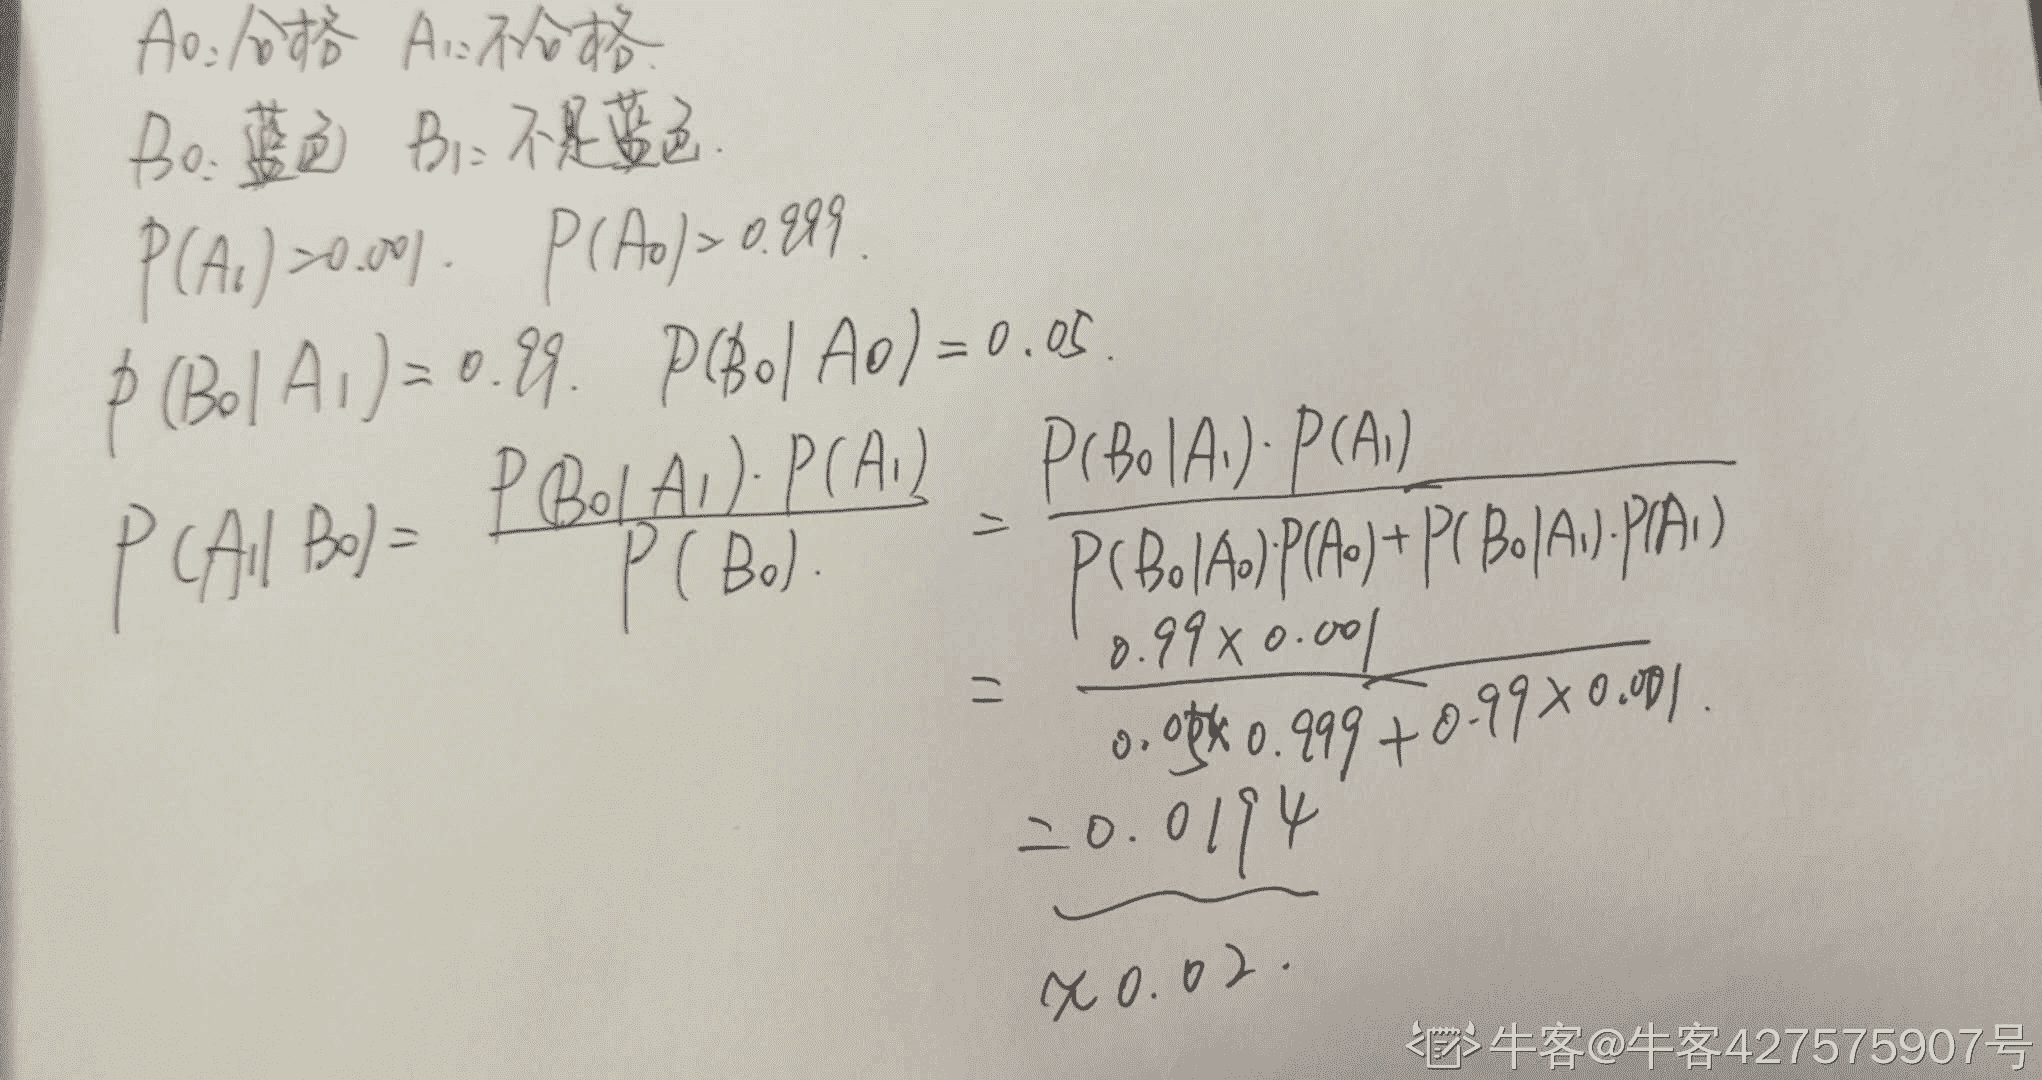 A0:合格 A1:不合格.
B0:蓝色 B1:不是蓝色.
P(A1)=0.001. P(A0)=0.999.
P(B0|A1)=0.99. P(B0|A0)=0.05.
P(A1|B0)= P(B0|A1)·P(A1) / P(B0). = P(B0|A1)·P(A1) / P(B0|A0)·P(A0)+P(B0|A1)·P(A1)
= 0.99×0.001 / 0.05×0.999+0.99×0.001.
=0.0194
≈0.02.
牛客@牛客427575907号